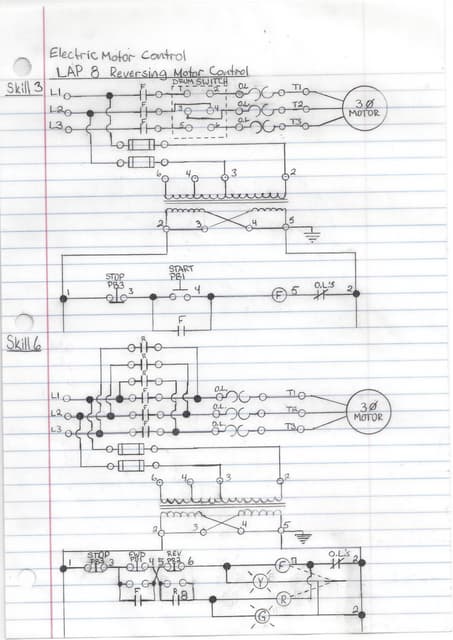 Electric Motor Control
LAP 8 Reversing Motor Control
Skill 3
DRUM SWITCH
L1 F 1 2 O.L T1
L2 F 3 4 O.L T2
L3 F 5 6 O.L T3
3Ø
MOTOR
6 4 3 2
2 3 4 5
1 STOP
PB3 3
START
PB1 4
F 5 O.L'S 2
F
Skill 6
R
R
R
L1 F O.L T1
L2 F O.L
L3 F O.L
3Ø
MOTOR
6 4 3 2
2 3 4 5
1 STOP 3 FWD 4 5 REV 6 F 7 O.L'S 2
F R 8 Y
R
G 2